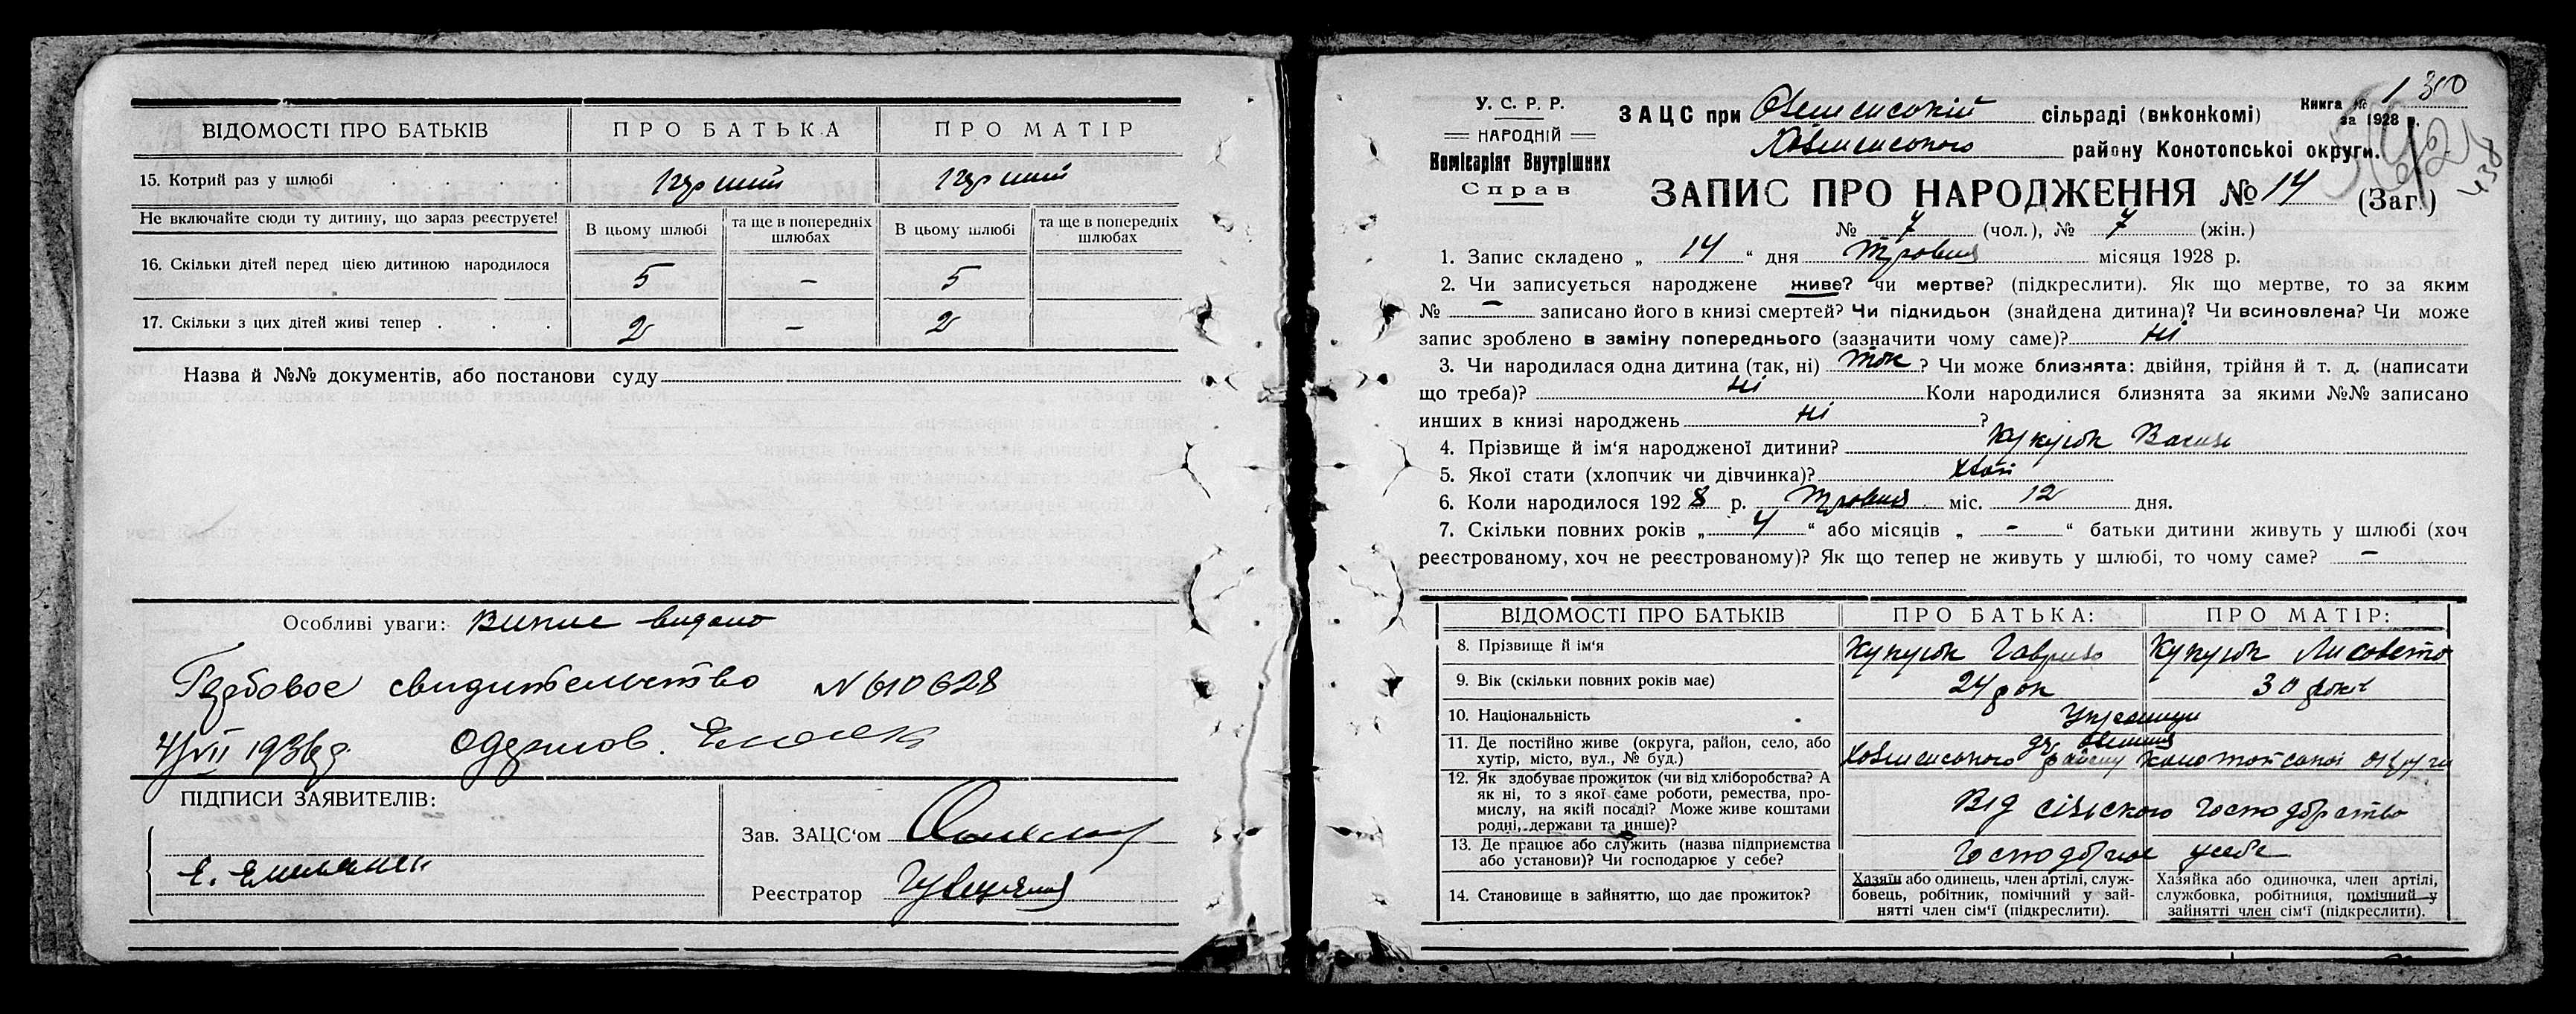 ВІДОМОСТІ ПРО БАТЬКІВ ПРО БАТЬКА ПРО МАТІР
15. Котрий раз у шлюбі
Не включайте сюди ту дитину, що зараз реєструєте!
В цьому шлюбі та ще в попередніх шлюбах В цьому шлюбі та ще в попередніх шлюбах
16. Скільки дітей перед цією дитиною народилося 5 – 5
17. Скільки з цих дітей живі тепер 2 – 2
Назва й №№ документів, або постанови суду
Особливі уваги: Випис видано
Гербовое свидительство N 610628
ПІДПИСИ ЗАЯВИТЕЛІВ:
Зав. ЗАЦС‘ом
Реєстратор
У. С. Р. Р.
НАРОДНІЙ
Комісаріят Внутрішних
Справ
ЗАЦС при сільраді (виконкомі)
району Конотопської округи.
Книга № 1 310
за 1928 р.
438
ЗАПИС ПРО НАРОДЖЕННЯ № 14 (Заг.)
№ 7 (чол.), № 7 (жін.)
1. Запис складено „ 14 “ дня Травня місяця 1928 р.
2. Чи записується народжене живе? чи мертве? (підкреслити). Як що мертве, то за яким
№ – записано його в книзі смертей? Чи підкидьок (знайдена дитина)? Чи всиновлена? Чи може
запис зроблено в заміну попереднього (зазначити чому саме)? Ні
3. Чи народилася одна дитина (так, ні) Так ? Чи може близнята: двійня, трійня й т. д. (написати
що треба)? Ні Коли народилися близнята за якими №№ записано
инших в книзі народжень Ні ?
4. Прізвище й ім‘я народженої дитини? Кукуюк Василь
5. Якої стати (хлопчик чи дівчинка)?
6. Коли народилося 1928 р. Травня міс. 12 дня.
7. Скільки повних років „ 4 “ або місяців „ – “ батьки дитини живуть у шлюбі (хоч
реєстрованому, хоч не реєстрованому)? Як що тепер не живуть у шлюбі, то чому саме? –
ВІДОМОСТІ ПРО БАТЬКІВ ПРО БАТЬКА: ПРО МАТІР:
8. Прізвище й ім‘я Кукуюк Гаврило Кукуюк Лисавета
9. Вік (скільки повних років має) 24 рок 30 років
10. Національність Українці
11. Де постійно живе (округа, район, село, або
хутір, місто, вул., № буд.) району Конотопської округи
12. Як здобуває прожиток (чи від хліборобства? А
як ні, то з якої саме роботи, ремества, про-
мислу, на якій посаді? Може живе коштами
родні, держави та инше)? Від сільского господарства
13. Де працює або служить (назва підприємства
або установи)? Чи господарює у себе? Господарює у себе
14. Становище в зайняттю, що дає прожиток?
Хазяїн або одинець, член артілі, служ-
бовець, робітник, помічний у зай-
нятті член сім‘ї (підкреслити).
Хазяйка або одиночка, член артілі,
службовка, робітниця, помічний у
зайнятті член сім‘ї (підкреслити).